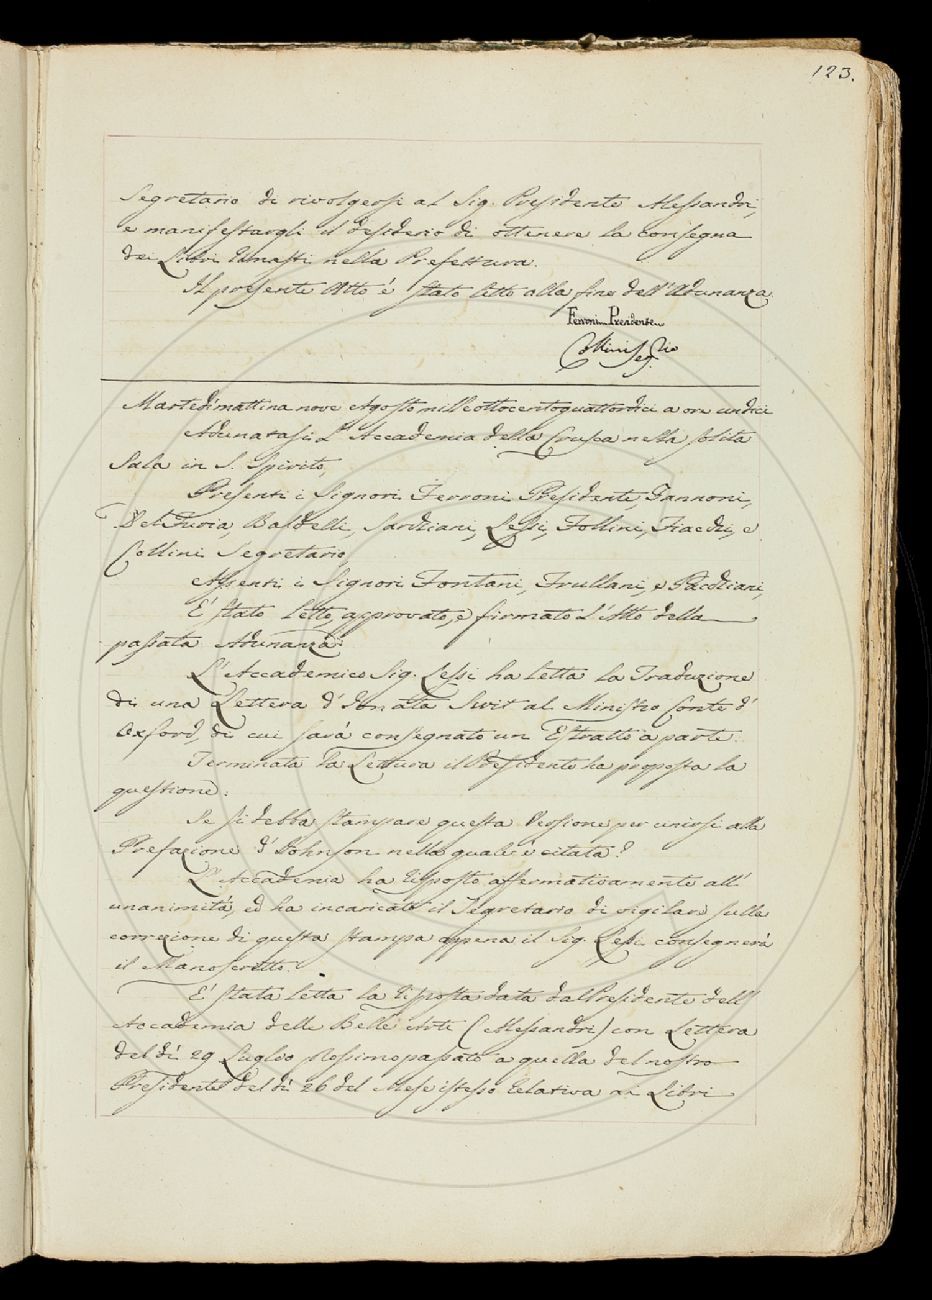 123.
Segretario di rivolgersi al Sig. Presidente Alessandri,
e manifestargli il desiderio di ottenere la consegna
dei Libri rimasti nella Prefettura.
Il presente Atto è stato letto alla fine dell'Adunanza.
Ferroni Presidente
Collini Seg.rio
Martedì mattina nove Agosto milleottocentoquattordici a ore undici
Adunatasi L'Accademia della Crusca nella solita
Sala in S. Spirito,
Presenti i Signori Ferroni Presidente, Zannoni,
Del Furia, Baldelli, Sarchiani, Lessi, Follini, Fiacchi, e
Collini Segretario,
Assenti i Signori Fontani, Frullani, e Pacchiani,
E' stato letto, approvato, e firmato L'Atto della
passata Adunanza.
L'Accademico Sig. Lessi ha letta la Traduzione
di una Lettera d' Jonata Swit al Ministro Conte d'
Oxford, di cui sarà consegnato un Estratto a parte.
Terminata la Lettura il Presidente ha proposta la
questione:
Se si debba stampare questa Versione per unirsi alla
Prefazione d' Johnson nella quale è citata?
L'Accademia ha risposto affermativamente all'
unanimità, ed ha incaricato il Segretario di vigilare sulla
correzione di questa stampa appena il Sig. Lessi consegnerà
il Manoscritto.
E' stata letta la risposta data dal Presidente dell'
Accademia delle Belle Arti (Alessandri) con Lettera
del dì 29 Luglio prossimo passato a quella del nostro
Presidente del dì 26 del Mese istesso relativa ai Libri